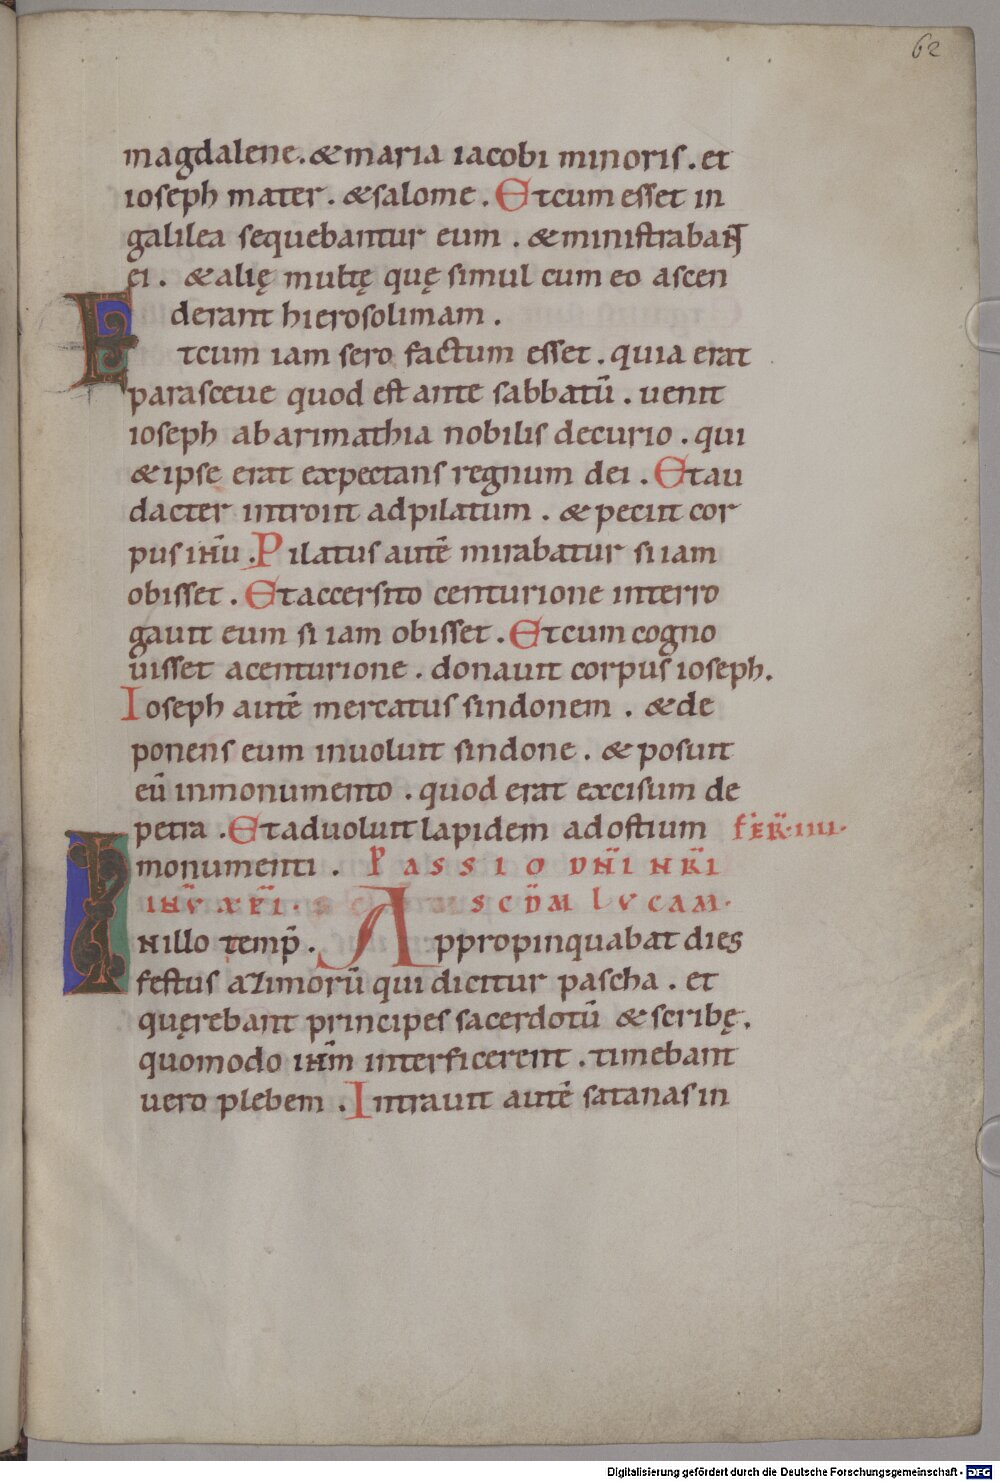 62
magdalene. & maria iacobi minoris. et
ioseph mater. & salome. Et cum esset in
galilea sequebantur eum. & ministrabant
ei. & alię multę quę simul cum eo ascen
derant hierosolimam.
Et cum iam sero factum esset. quia erat
parasceue quod est ante sabbatū. uenit
ioseph ab arimathia nobilis decurio. qui
& ipse erat expectans regnum dei. Et au
dacter introiit ad pilatum. & petiit cor
pus ihū. Pilatus autē mirabatur si iam
obisset. Et accersito centurione interro
gauit eum si iam obisset. Et cum cogno
uisset a centurione. donauit corpus ioseph.
Ioseph autē mercatus sindonem. & de
ponens eum inuoluit sindone. & posuit
eū in monumento. quod erat excisum de
petra. Et aduoluit lapidem ad ostium FER̄. IIII.
monumenti. PASSIO DN̄I NR̄I
IHV̄ XP̄I. SCD̄M LVCAM.
IN illo temp̄. Appropinquabat dies
festus azimorū qui dicitur pascha. et
quęrebant principes sacerdotū & scribę.
quomodo ihm̄ interficerent. timebant
uero plebem. Intrauit autē satanas in
Digitalisierung gefördert durch die Deutsche Forschungsgemeinschaft - DFG